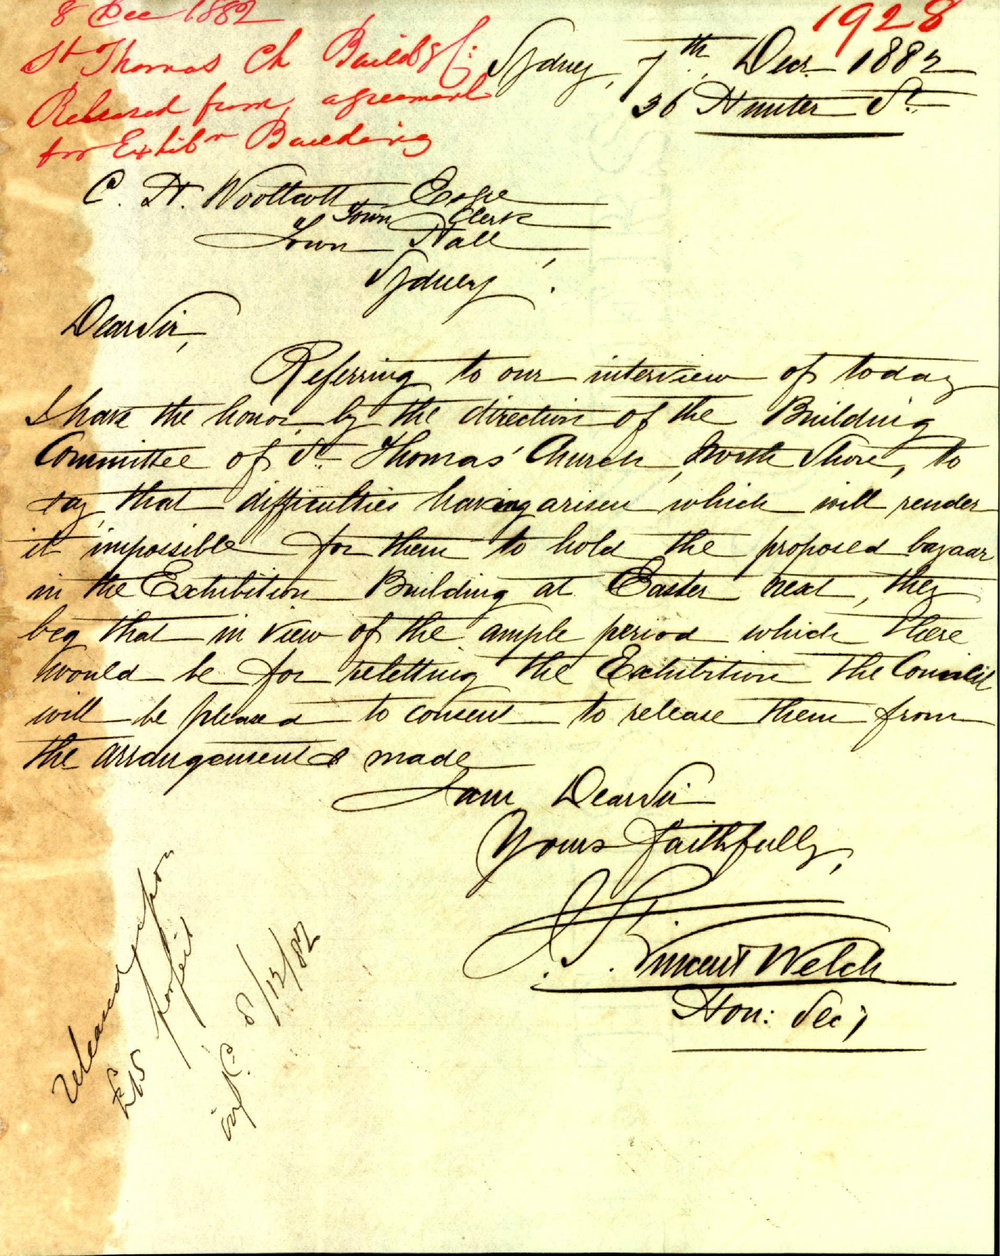 8 Dec 1882
1928
St Thomas Ch Buildg C:
Released from agreement
for Exhibn Building
Sydney, 7th, Decr. 1882
36 Hunter St.
C. H. Woolcott Esqre
Town Clerk
Town Hall,
Sydney.
Dear Sir,
Referring to our interview of today
I have the honor by the direction of the Building
Committee of St. Thomas' Church, North Shore, to
say, that difficulties having arisen, which will render
it impossible for them to hold the proposed bazaar
in the Exhibition Building at Easter next, they
beg that in view of the ample period which there
would be for reletting the Exhibition the Council
will be pleased to consent to release them from
the arrangements made
I am, Dear Sir
Yours Faithfully,
J. S. Vincent Welch
Hon: Secy
released upon
£15 forfeit
8/12/82